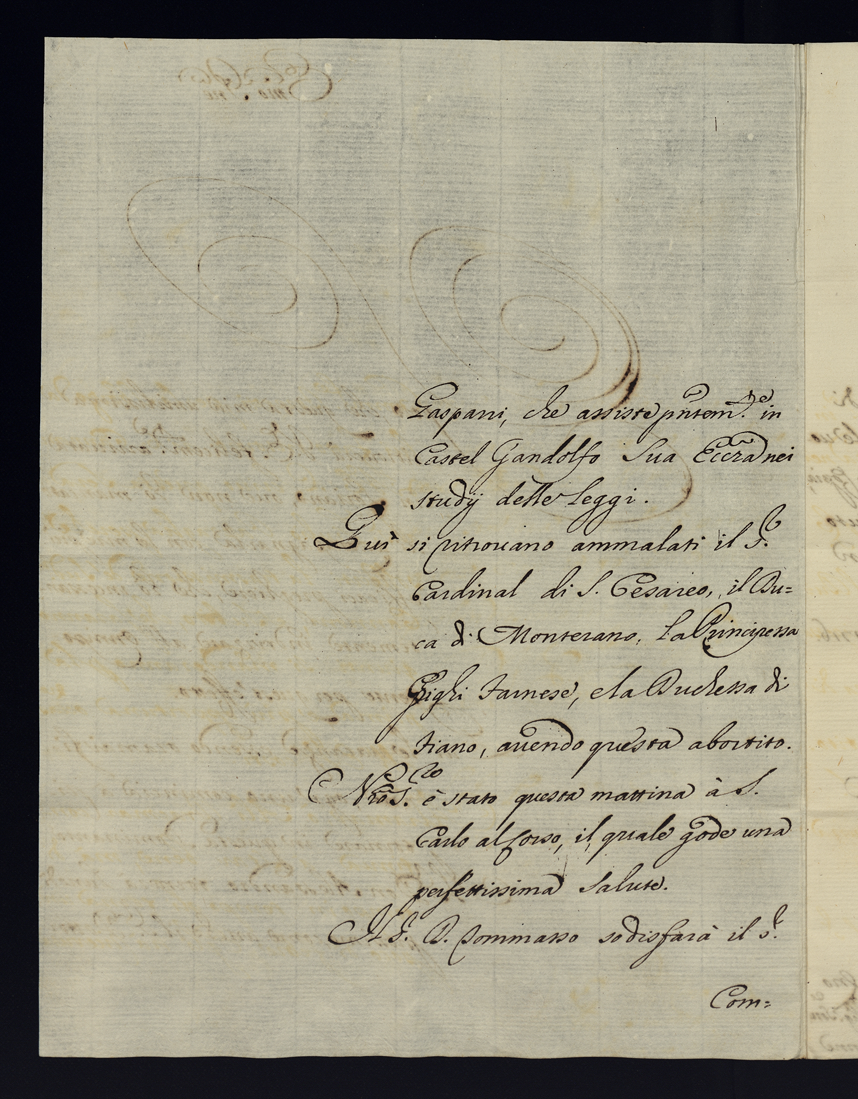 Gaspani, che assiste pñtem.te in
Castel Gandolfo Sua Eccza nei
studij delle Leggi.
Qui si ritrovano ammalati il S.r
Cardinal di S. Cesareo, il Du=
ca di Monterano, la Principessa
Ghighi Farnese, e la Duchessa di
Fiano, avendo questa abortito.
Nrõ S.re è stato questa mattina à S.
Carlo al Corso, il quale gode una
perfettissima salute.
Al S. D. Tommaso sodisfarà il S.r
Com=